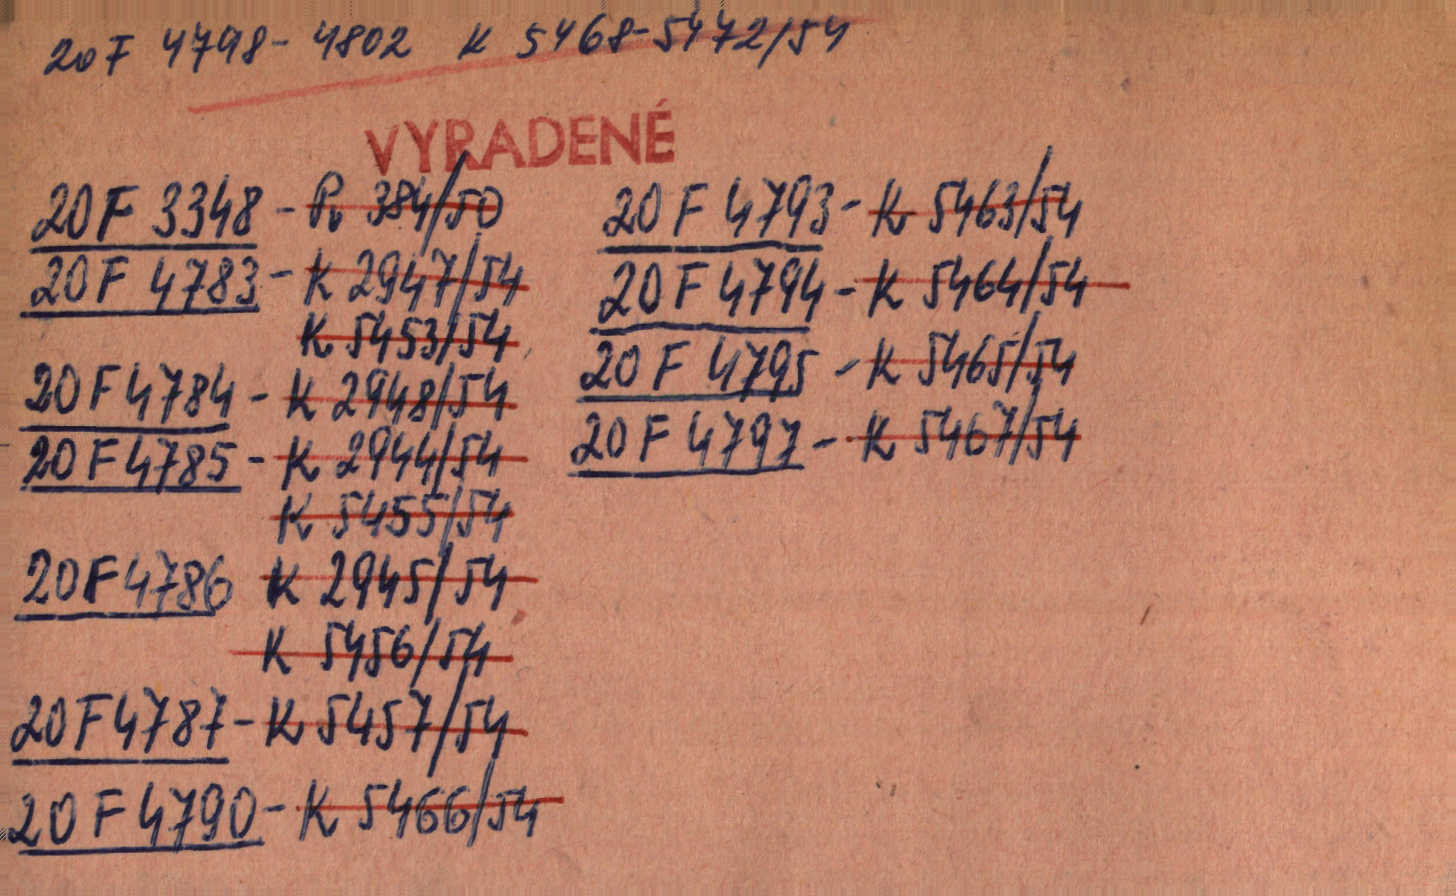 20F 4798-4802 K 5468-5472/54
VYRADENÉ
20F 3348 - Pr 384/50
20F 4783 - K 2947/54
K 5453/54
20F 4784 - K 2948/54
20F 4785 - K 2944/54
K 5455/54
20F 4786 K 2945/54
K 5456/54
20F 4787 - K 5457/54
20F 4790 - K 5466/54
20F 4793 - K 5463/54
20F 4794 - K 5464/54
20F 4795 - K 5465/54
20F 4797 - K 5467/54